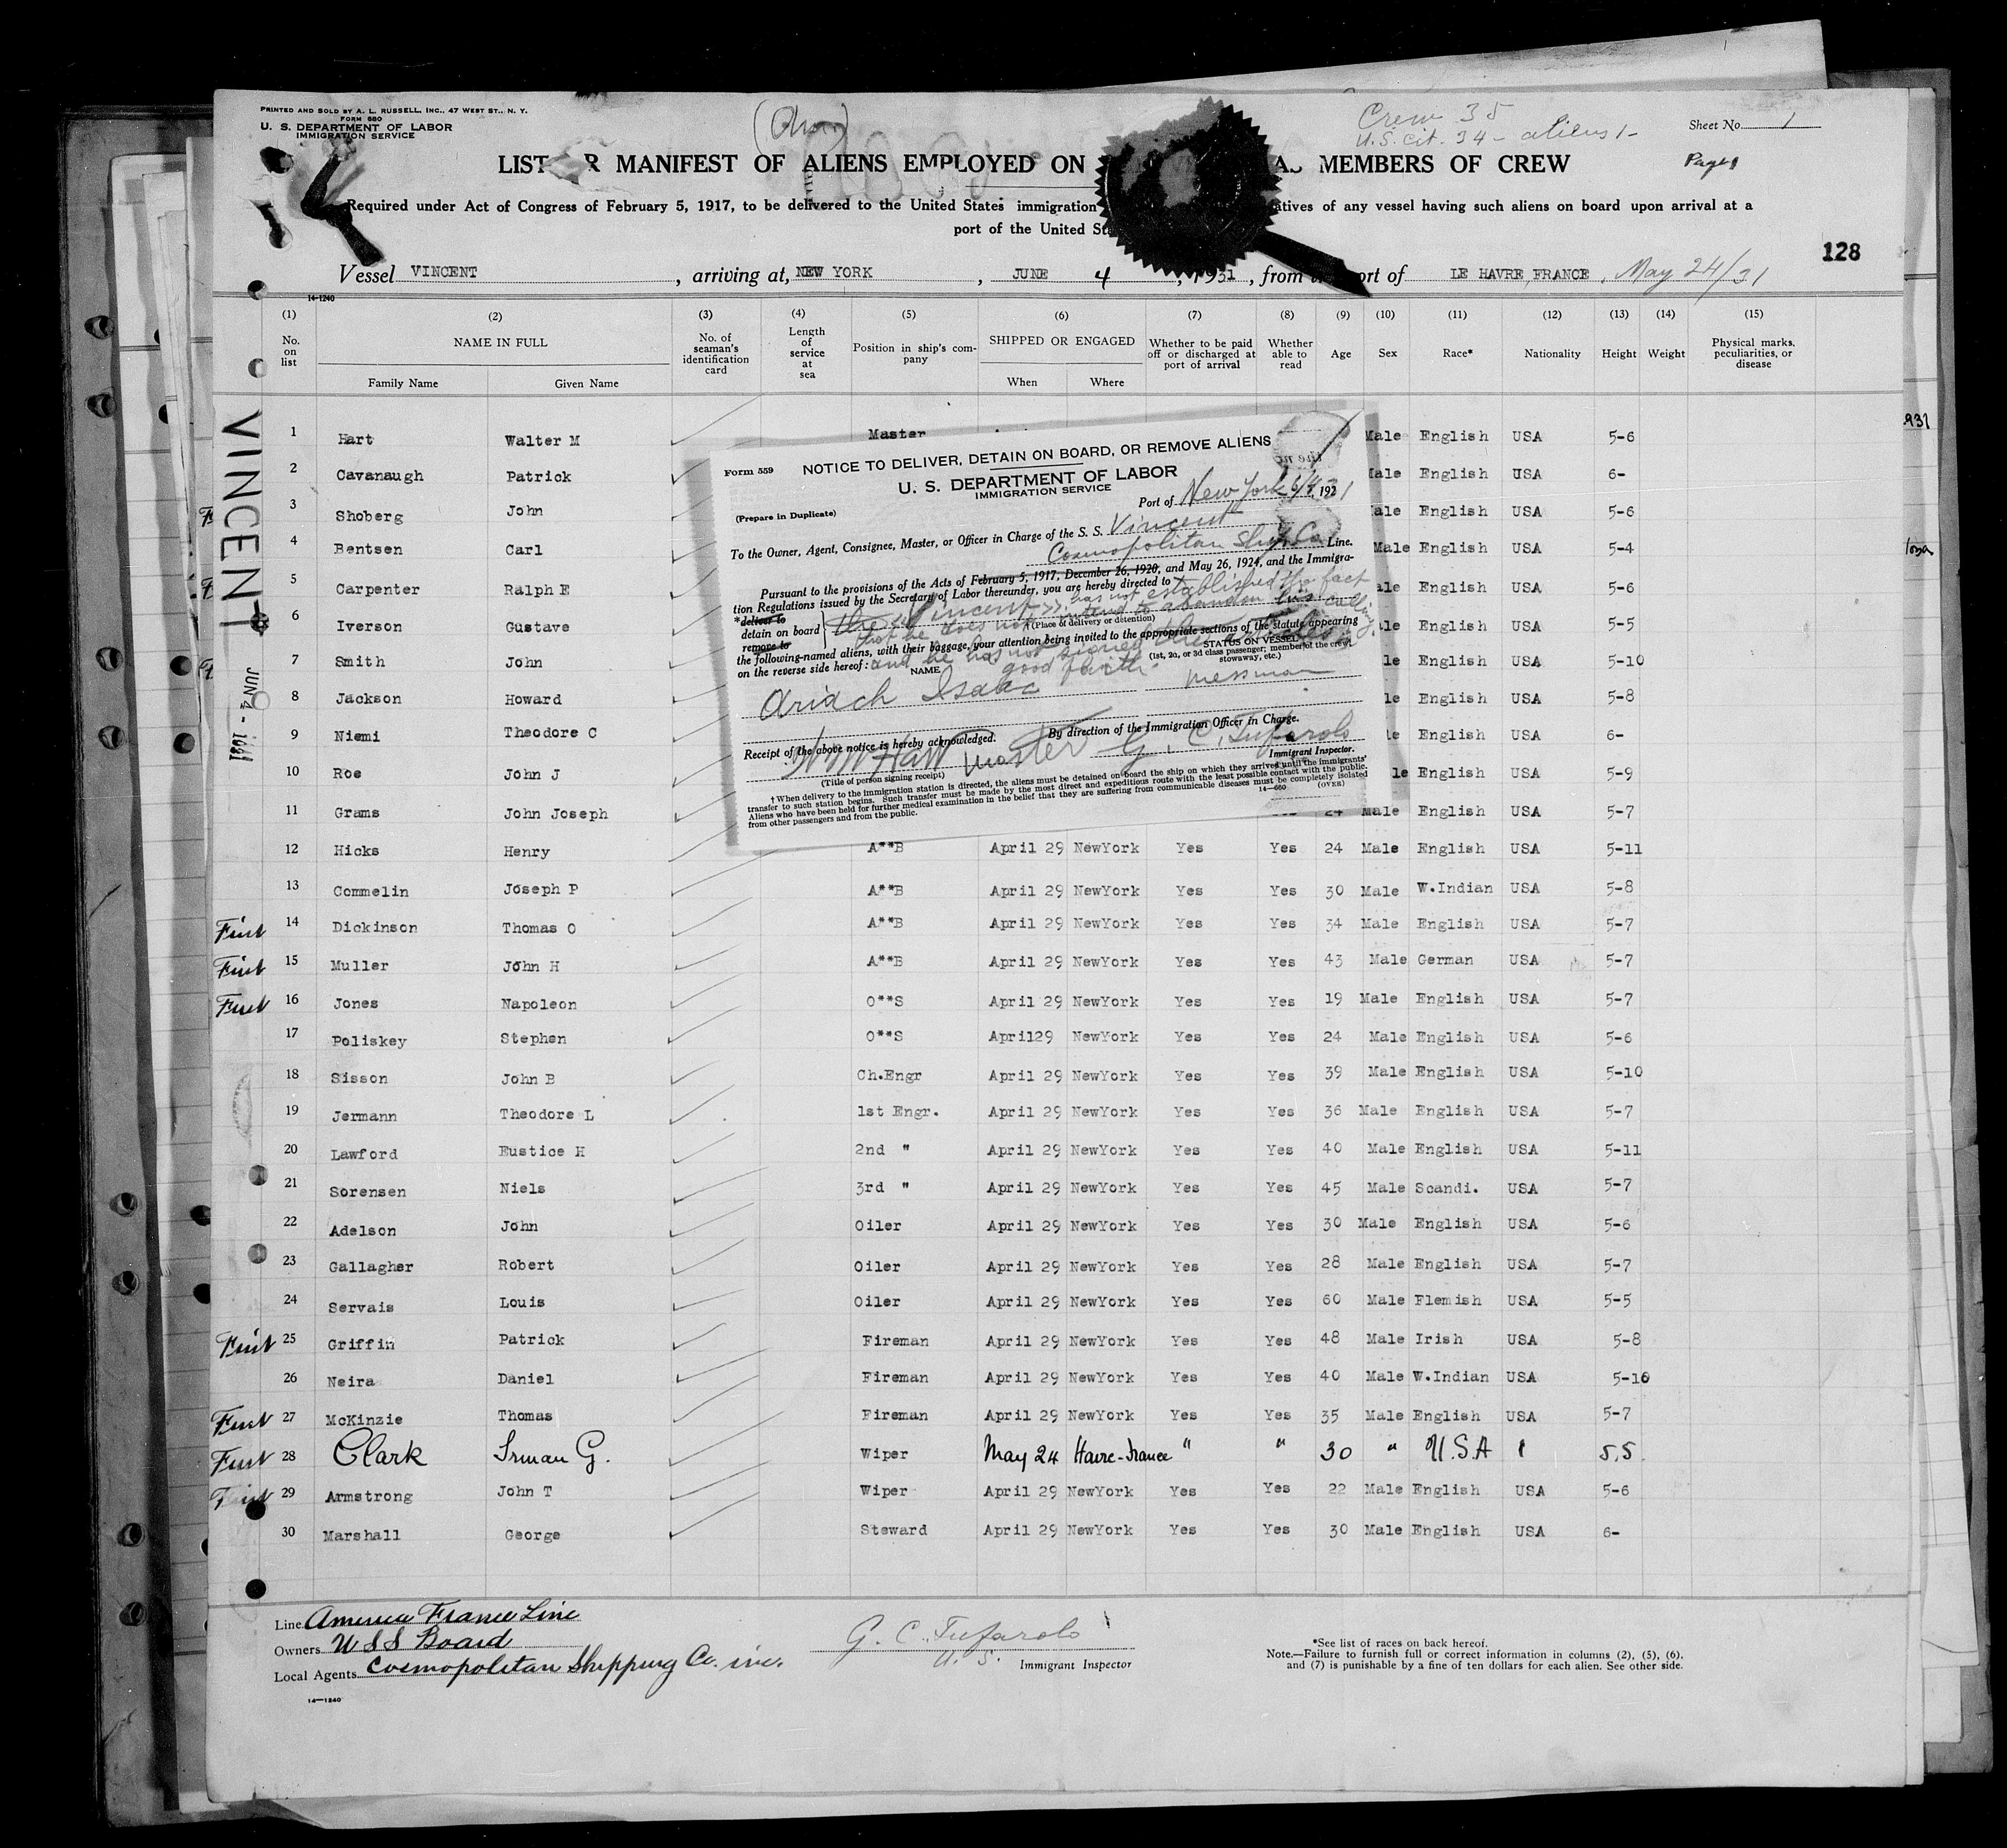 PRINTED AND SOLD BY A. L. RUSSELL, INC., 47 WEST ST., N. Y.
FORM 680
U. S. DEPARTMENT OF LABOR
IMMIGRATION SERVICE
Crew 35
U.S. cit. 34 - aliens 1 -
Sheet No. 1
Page 1
LIST MANIFEST OF ALIENS EMPLOYED ON AS MEMBERS OF CREW
Required under Act of Congress of February 5, 1917, to be delivered to the United States immigration of any vessel having such aliens on board upon arrival at a
port of the United
128
Vessel VINCENT, arriving at, NEW YORK, JUNE 4, 1931, from port of LE HAVRE, FRANCE, May 24/31
14-1240
(1) (2) (3) (4) (5) (6) (7) (8) (9) (10) (11) (12) (13) (14) (15)
No. on list NAME IN FULL Family Name Given Name No. of seaman's identification card Length of service at sea Position in ship's company SHIPPED OR ENGAGED When Where Whether to be paid off or discharged at port of arrival Whether able to read Age Sex Race* Nationality Height Weight Physical marks, peculiarities, or disease
VINCENT
JUN 4 - 1931
1 Hart Walter M Master Male English USA 5-6
2 Cavanaugh Patrick Male English USA 6-
3 Shoberg John Male English USA 5-6
4 Bentsen Carl Male English USA 5-4
5 Carpenter Ralph E English USA 5-6
6 Iverson Gustave English USA 5-5
7 Smith John English USA 5-10
8 Jackson Howard English USA 5-8
9 Niemi Theodore C English USA 6-
10 Roe John J English USA 5-9
11 Grams John Joseph 24 Male English USA 5-7
Form 559
NOTICE TO DELIVER, DETAIN ON BOARD, OR REMOVE ALIENS
U. S. DEPARTMENT OF LABOR
IMMIGRATION SERVICE
(Prepare in Duplicate)
Port of New York 6/4, 1931
To the Owner, Agent, Consignee, Master, or Officer in Charge of the S. S. Vincent
Cosmopolitan Ship Co Line.
Pursuant to the provisions of the Acts of February 5, 1917, December 26, 1920, and May 26, 1924, and the Immigra-
tion Regulations issued by the Secretary of Labor thereunder, you are hereby directed to
*deliver to
detain on board
remove to
the Vincent has not established the fact
that he does not intend to abandon his calling
(Place of delivery or detention)
the following-named aliens, with their baggage, your attention being invited to the appropriate sections of the statute appearing
on the reverse side hereof: and he has not signed the articles in
good faith.
NAME
STATUS ON VESSEL
(1st, 2d, or 3d class passenger; member of the crew, stowaway, etc.)
Ariach Isaac messman
Receipt of the above notice is hereby acknowledged. By direction of the Immigration Officer in Charge.
W M Hart master G. C. Tufarolo
(Title of person signing receipt) Immigrant Inspector.
† When delivery to the immigration station is directed, the aliens must be detained on board the ship on which they arrived until the immigrants'
transfer to such station begins. Such transfer must be made by the most direct and expeditious route with the least possible contact with the public.
Aliens who have been held for further medical examination in the belief that they are suffering from communicable diseases must be completely isolated
from other passengers and from the public.
14—680 (OVER)
12 Hicks Henry A**B April 29 NewYork Yes Yes 24 Male English USA 5-11
13 Commelin Joseph P A**B April 29 NewYork Yes Yes 30 Male W.Indian USA 5-8
First 14 Dickinson Thomas O A**B April 29 NewYork Yes Yes 34 Male English USA 5-7
First 15 Muller John H A**B April 29 NewYork Yes Yes 43 Male German USA 5-7
First 16 Jones Napoleon O**S April 29 NewYork Yes Yes 19 Male English USA 5-7
17 Poliskey Stephen O**S April29 NewYork Yes Yes 24 Male English USA 5-6
18 Sisson John B Ch.Engr April 29 NewYork Yes Yes 39 Male English USA 5-10
19 Jermann Theodore L 1st Engr. April 29 NewYork Yes Yes 36 Male English USA 5-7
20 Lawford Eustice H 2nd " April 29 NewYork Yes Yes 40 Male English USA 5-11
21 Sorensen Niels 3rd " April 29 NewYork Yes Yes 45 Male Scandi. USA 5-7
22 Adelson John Oiler April 29 NewYork Yes Yes 30 Male English USA 5-6
23 Gallagher Robert Oiler April 29 NewYork Yes Yes 28 Male English USA 5-7
24 Servais Louis Oiler April 29 NewYork Yes Yes 60 Male Flemish USA 5-5
First 25 Griffin Patrick Fireman April 29 NewYork Yes Yes 48 Male Irish USA 5-8
26 Neira Daniel Fireman April 29 NewYork Yes Yes 40 Male W.Indian USA 5-10
First 27 McKinzie Thomas Fireman April 29 NewYork Yes Yes 35 Male English USA 5-7
First 28 Clark Irman G. Wiper May 24 Havre-France " " 30 " U.S.A 5,5
First 29 Armstrong John T Wiper April 29 NewYork Yes Yes 22 Male English USA 5-6
30 Marshall George Steward April 29 NewYork Yes Yes 30 Male English USA 6-
Line America France Line
Owners U S S Board
Local Agents Cosmopolitan Shipping Co. inc.
G. C. Tufarolo
U. S. Immigrant Inspector
*See list of races on back hereof.
Note.—Failure to furnish full or correct information in columns (2), (5), (6),
and (7) is punishable by a fine of ten dollars for each alien. See other side.
14—1240